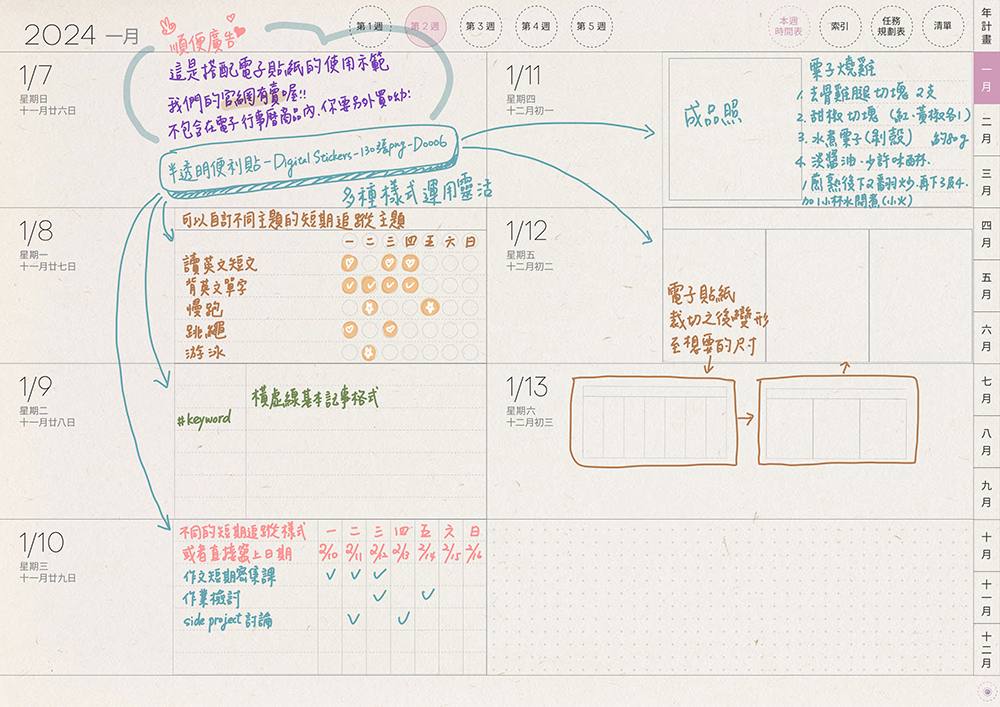 2024 一月
第1週
第2週
第3週
第4週
第5週
本週
時間表
索引
任務
規劃表
清單
年計畫
一月
二月
三月
四月
五月
六月
七月
八月
九月
十月
十一月
十二月
順便廣告
這是搭配電子貼紙的使用示範
我們的官網有賣喔!!
不包含在電子行事曆商品內,你要另外買呦!
半透明便利貼-Digital Stickers-130張png-D0006
多種樣式運用靈活
1/7
星期日
十一月廿六日
1/8
星期一
十一月廿七日
可以自訂不同主題的短期追蹤主題
一 二 三 四 五 六 日
讀英文短文
背英文單字
慢跑
跳繩
游泳
1/9
星期二
十一月廿八日
橫虛線基本記事格式
#keyword
1/10
星期三
十一月廿九日
不同的短期追蹤樣式
或者直接寫上日期
一 二 三 四 五 六 日
2/10 2/11 2/12 2/13 2/14 2/15 2/16
作文短期密集課
作業檢討
side project 討論
1/11
星期四
十二月初一
成品照
栗子燒雞
1. 去骨雞腿切塊 2支
2. 甜椒切塊 (紅、黃椒各1)
3. 水煮栗子(剝殼) 約80g
4. 淡醬油、少許味醂.
1煎熟後下2翻炒.再下3及4.
加1小杯水悶煮(小火)
1/12
星期五
十二月初二
電子貼紙
裁切之後變形
至想要的尺寸
1/13
星期六
十二月初三